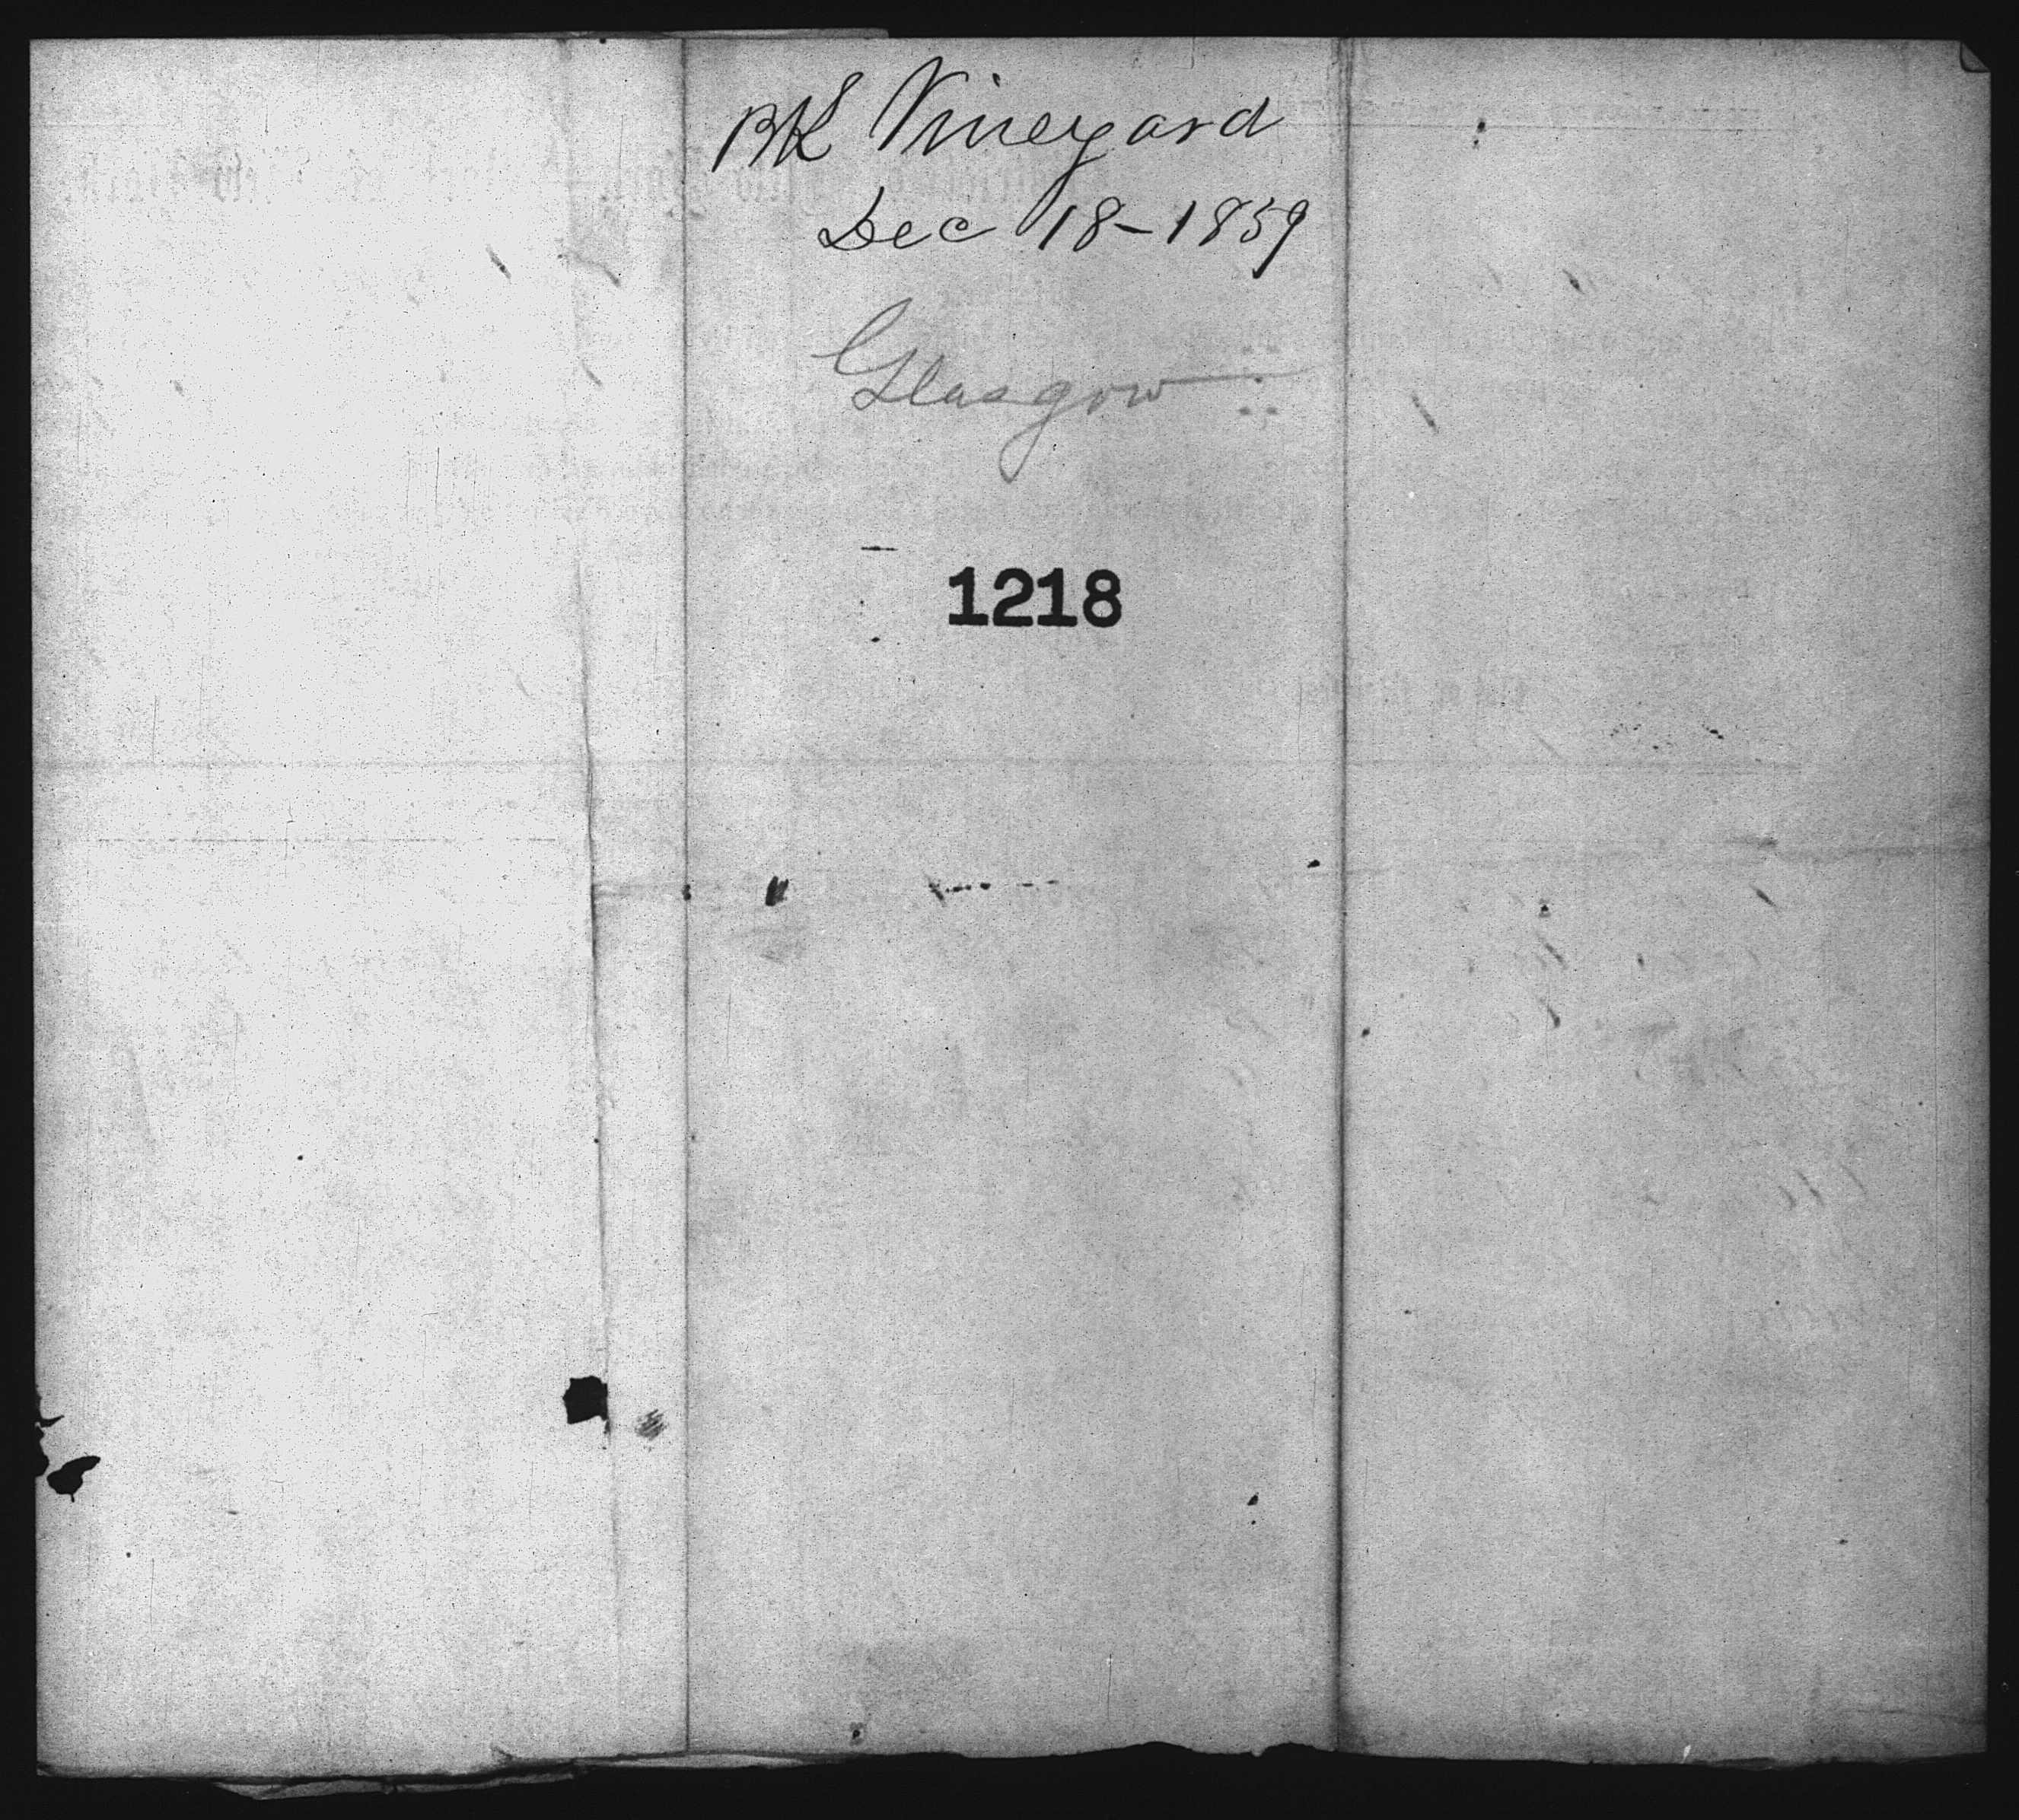 BK Vineyard
Dec 18-1859
Glasgow
1218